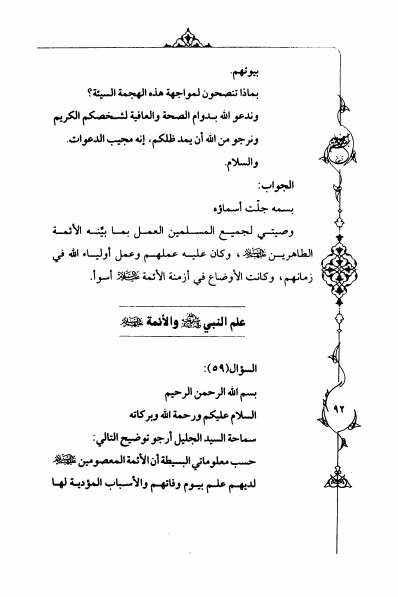 بيوتهم.
بماذا تنصحون لمواجهة هذه الهجمة السيئة؟
وندعو الله بدوام الصحة والعافية لشخصكم الكريم
ونرجو من الله أن يمد ظلكم، إنه مجيب الدعوات.
والسلام.
الجواب:
بسمه جلّت أسماؤه
وصيتي لجميع المسلمين العمل بما بيَّنه الأئمة
الطاهرين، وكان عليه عملهم وعمل أولياء الله في
زمانهم، وكانت الأوضاع في أزمنة الأئمة أسوأ.
علم النبي والأئمة
السؤال(٥٩):
بسم الله الرحمن الرحيم
السلام عليكم ورحمة الله وبركاته
سماحة السيد الجليل أرجو توضيح التالي:
حسب معلوماتي البسيطة أن الأئمة المعصومين
لديهم علم بيوم وفاتهم والأسباب المؤدية لها
٩٢